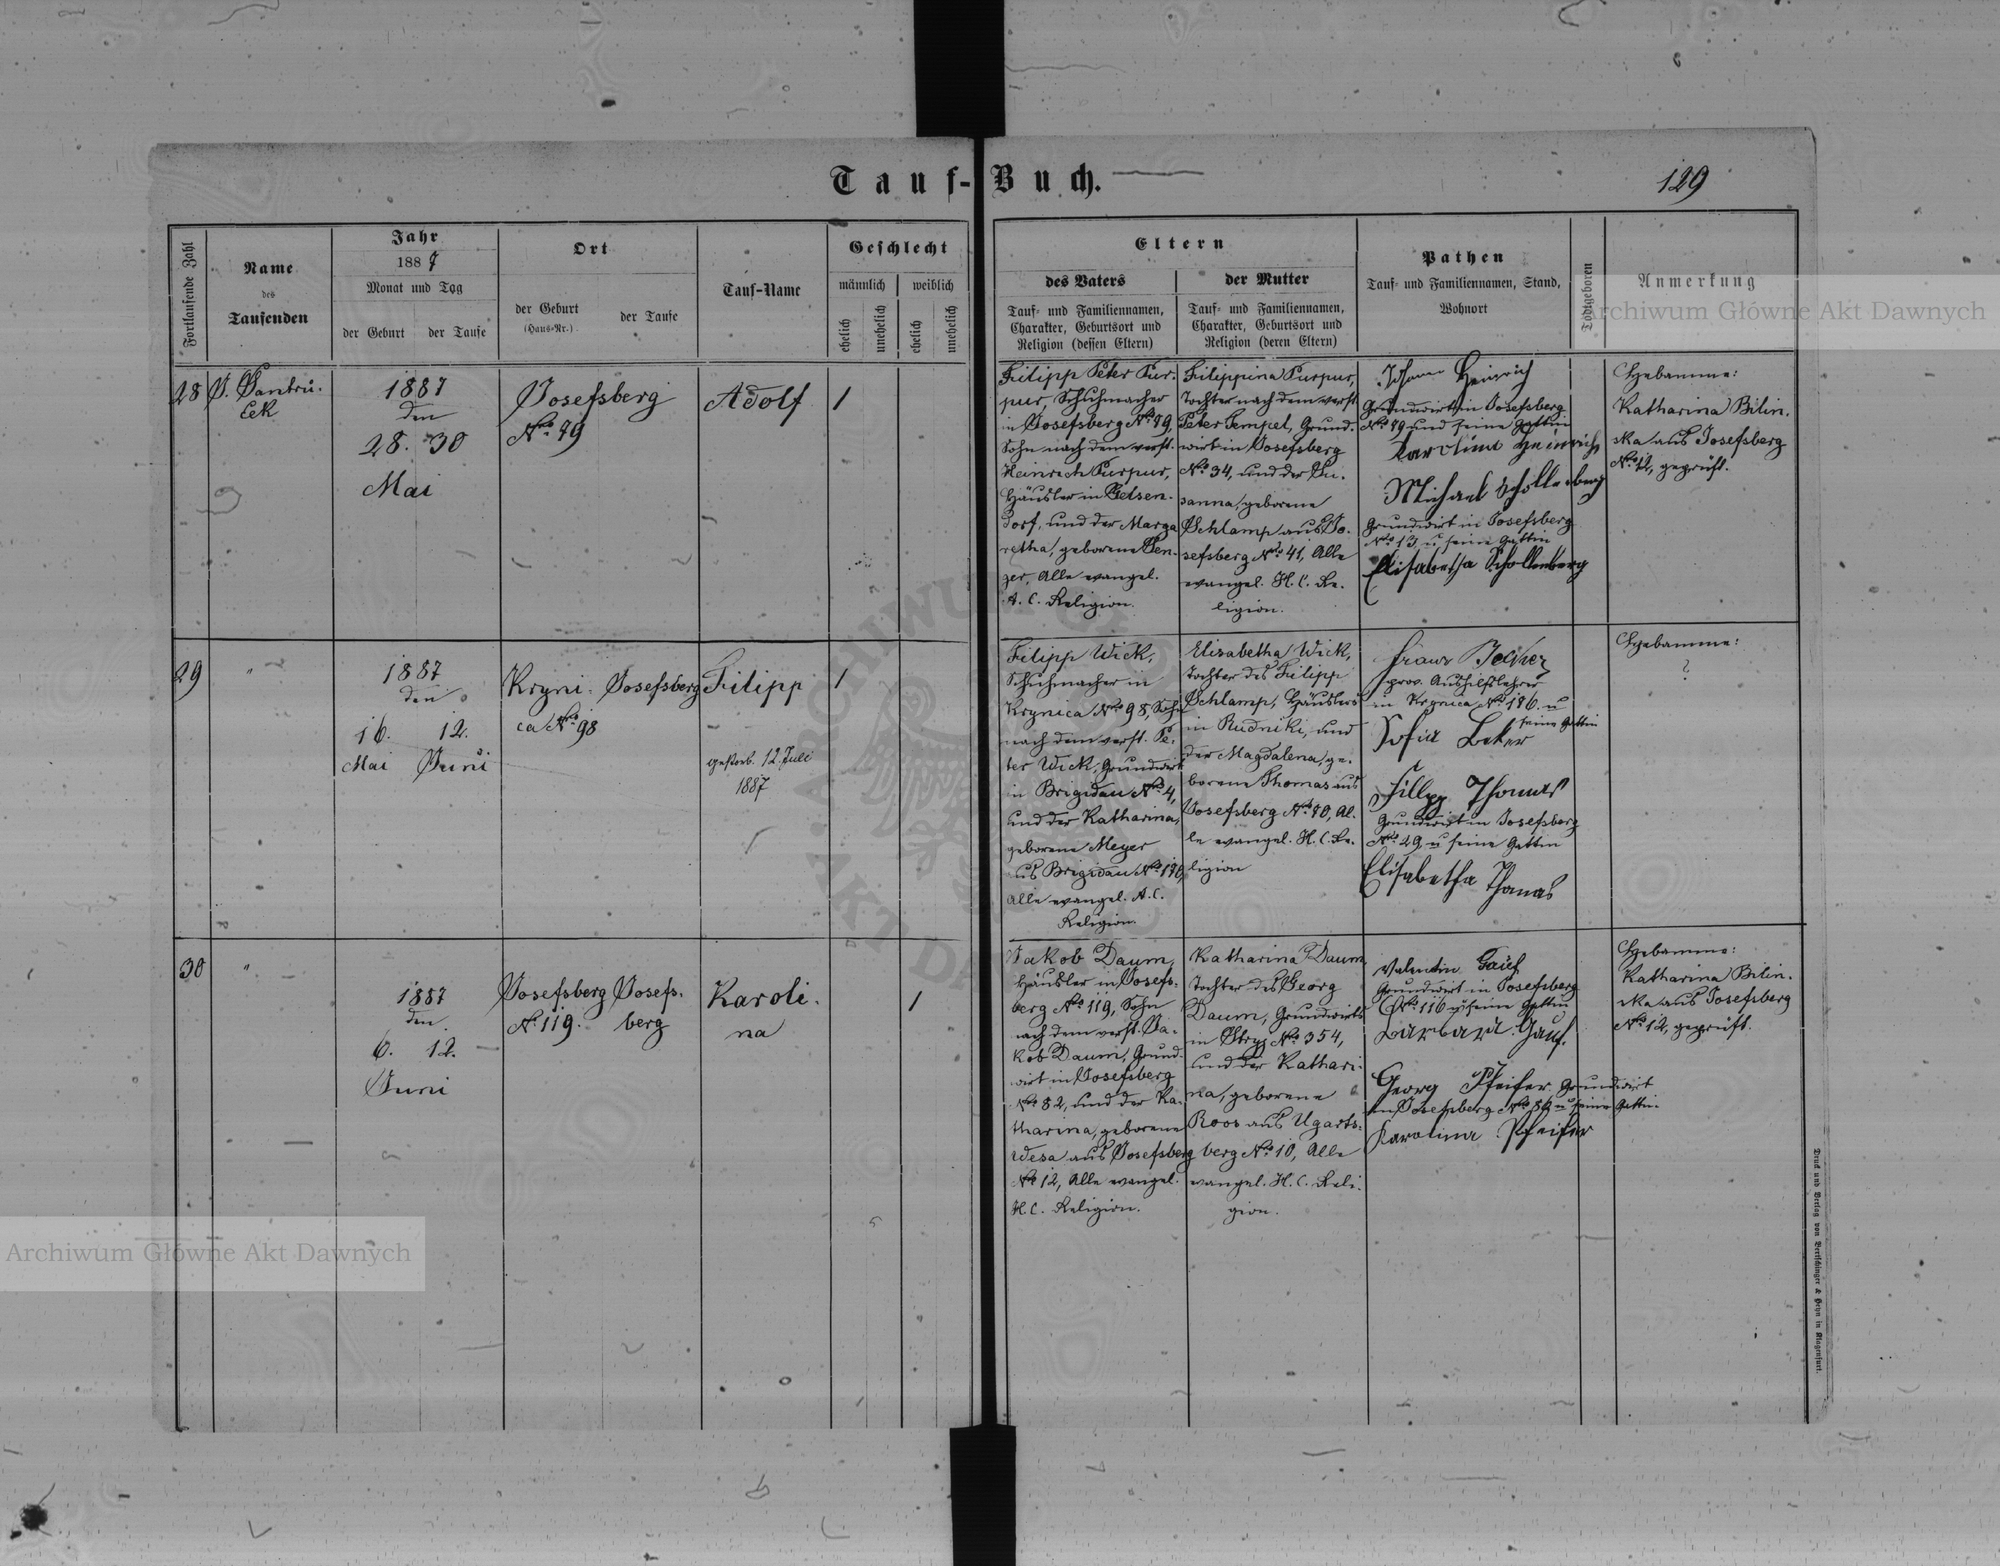 Tauf-Buch.
129
Fortlaufende Zahl
Name
des
Taufenden
Jahr
1887
Monat und Tag
der Geburt
der Taufe
Ort
der Geburt
(Haus-Nr.)
der Taufe
Tauf-Name
Geschlecht
männlich
weiblich
ehelich
unehelich
ehelich
unehelich
Eltern
des Vaters
Tauf- und Familiennamen,
Charakter, Geburtsort und
Religion (dessen Eltern)
der Mutter
Tauf- und Familiennamen,
Charakter, Geburtsort und
Religion (deren Eltern)
Pathen
Tauf- und Familiennamen, Stand,
Wohnort
Todtgeboren
Anmerkung
Archiwum Główne Akt Dawnych
28
1887
den
28. 30
Mai
Josefsberg
No. 79
Adolf
1
Filipp Peter Pur-
pur, Schuhmacher
in Josefsberg No. 79,
Sohn nach dem verst.
Heinrich Purpur,
Häusler in Gelsen-
dorf, und der Marga
retha, geborene Sen-
zer, Alle evangel.
A. C. Religion.
Filippina Purpur,
Tochter nach dem verst.
Peter Tempel, Grund-
wirt in Josefsberg
No. 34, und der Su-
sanna, geborene
Schlamp aus Jo-
sefsberg No. 41, Alle
evangel. H. C. Re-
ligion.
Johann Heinrich
Grundwirt in Josefsberg
No. 79 und seine Gattin
Karolina Heinrich
Michael Schollenberg
Grundwirt in Josefsberg
No. 13, u seine Gattin
Elisabetha Schollenberg
Hebamme:
Katharina Bilin-
ska aus Josefsberg
No. 12, geprüft.
29
"
1887
den
16. 12.
Mai Juni
Kryni- Josefsberg
ca No. 98
Filipp
gestorb. 12. Juli
1887
1
Filipp Wick,
Schuhmacher in
Krynica No. 98, Sohn
nach dem verst. Pe-
ter Wick, Grundwirt
in Brigidau No. 4,
und der Katharina,
geborene Meyer
aus Brigidau No. 190,
Alle evangel. A. C.
Religion.
Elisabetha Wick,
Tochter des Filipp
Schlamp, Häuslers
in Rudniki, und
der Magdalena, ge-
borene Thomas aus
Josefsberg No. 70, Al-
le evangel. H. C. Re-
ligion
prov. Aushilfslehrer
in Krynica No. 186. u
seine Gattin
Sofia Beker
Fillipp Thomas
Grundwirt in Josefsberg
No. 29, u seine Gattin
Elisabetha Thomas
Hebamme:
?
30
"
1887
den
6. 12.
Juni
Josefsberg Josefs-
No. 119. berg
Karoli-
na
1
Jakob Daum,
Häusler in Josefs-
berg No. 119, Sohn
nach dem verst. Ja-
kob Daum, Grund-
wirt in Josefsberg
No. 82, und der Ka-
tharina, geborene
Wesa aus Josefsberg
No. 12, Alle evangel.
H. C. Religion.
Katharina Daum,
Tochter des Georg
Daum, Grundwirts
in Stryj No. 354,
und der Kathari-
na, geborene
Roos aus Ugarts-
berg No. 10, Alle
evangel. H. C. Reli-
gion.
Valentin Gauf
Grundwirt in Josefsberg
No. 116 u seine Gattin
Barbara Gauf.
Georg Pfeifer Grundwirt
in Josefsberg No. 86 u seine Gattin
Karolina Pfeifer
Hebamme:
Katharina Bilin-
ska aus Josefsberg
No. 12, geprüft.
Archiwum Główne Akt Dawnych
Druck und Verlag von Bertschinger & Heyn in Klagenfurt.